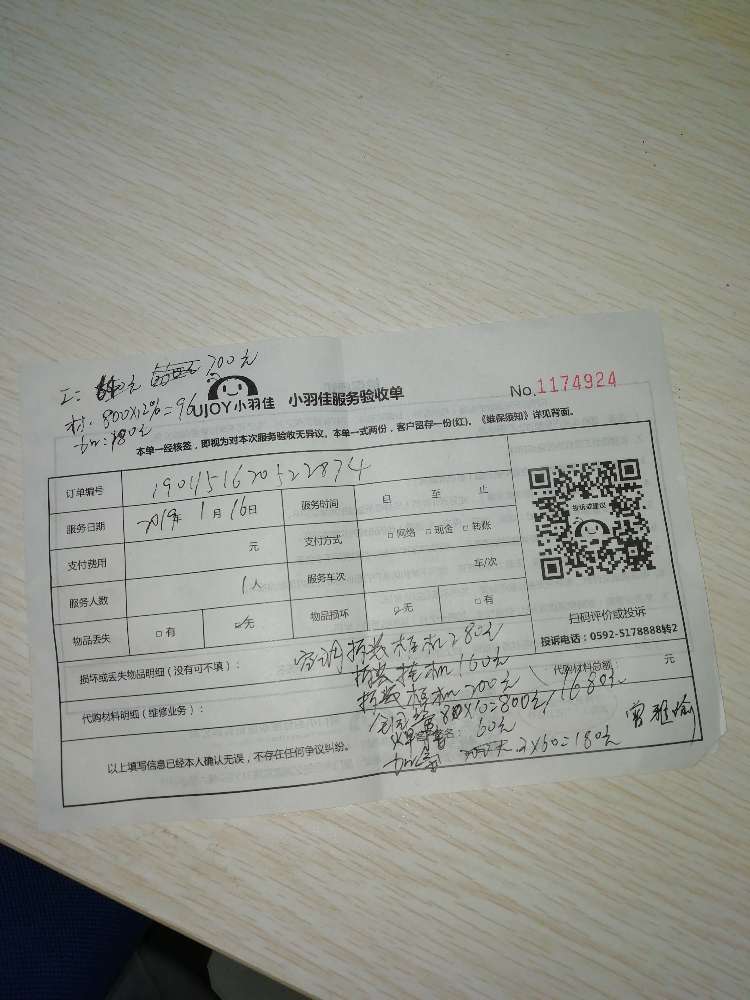 700元
标：800X12%=96
加：180元
UJOY小羽佳 小羽佳服务验收单 No.1174924
本单一经核签，即视为对本次服务验收无异议。本单一式两份，客户留存一份(红)。《维保须知》详见背面。
订单编号 1901151620522874
服务日期 2019年 1月 16日 服务时间 自 至 止
投诉或建议
支付费用 元 支付方式 □网络 □现金 □转账
服务人数 1人 服务车次 车/次
物品丢失 □有 ☑无 物品损坏 ☑无 □有
扫码评价或投诉
投诉电话：0592-5178888转2
损坏或丢失物品明细（没有可不填）：
空调拆装柜机280元
拆装挂机160元
代购材料明细（维修业务）： 代购材料总额： 元
拆装柜机200元
80X10=800元 1680元
60元
以上填写信息已经本人确认无误，不存在任何争议纠纷。
3X60=180元